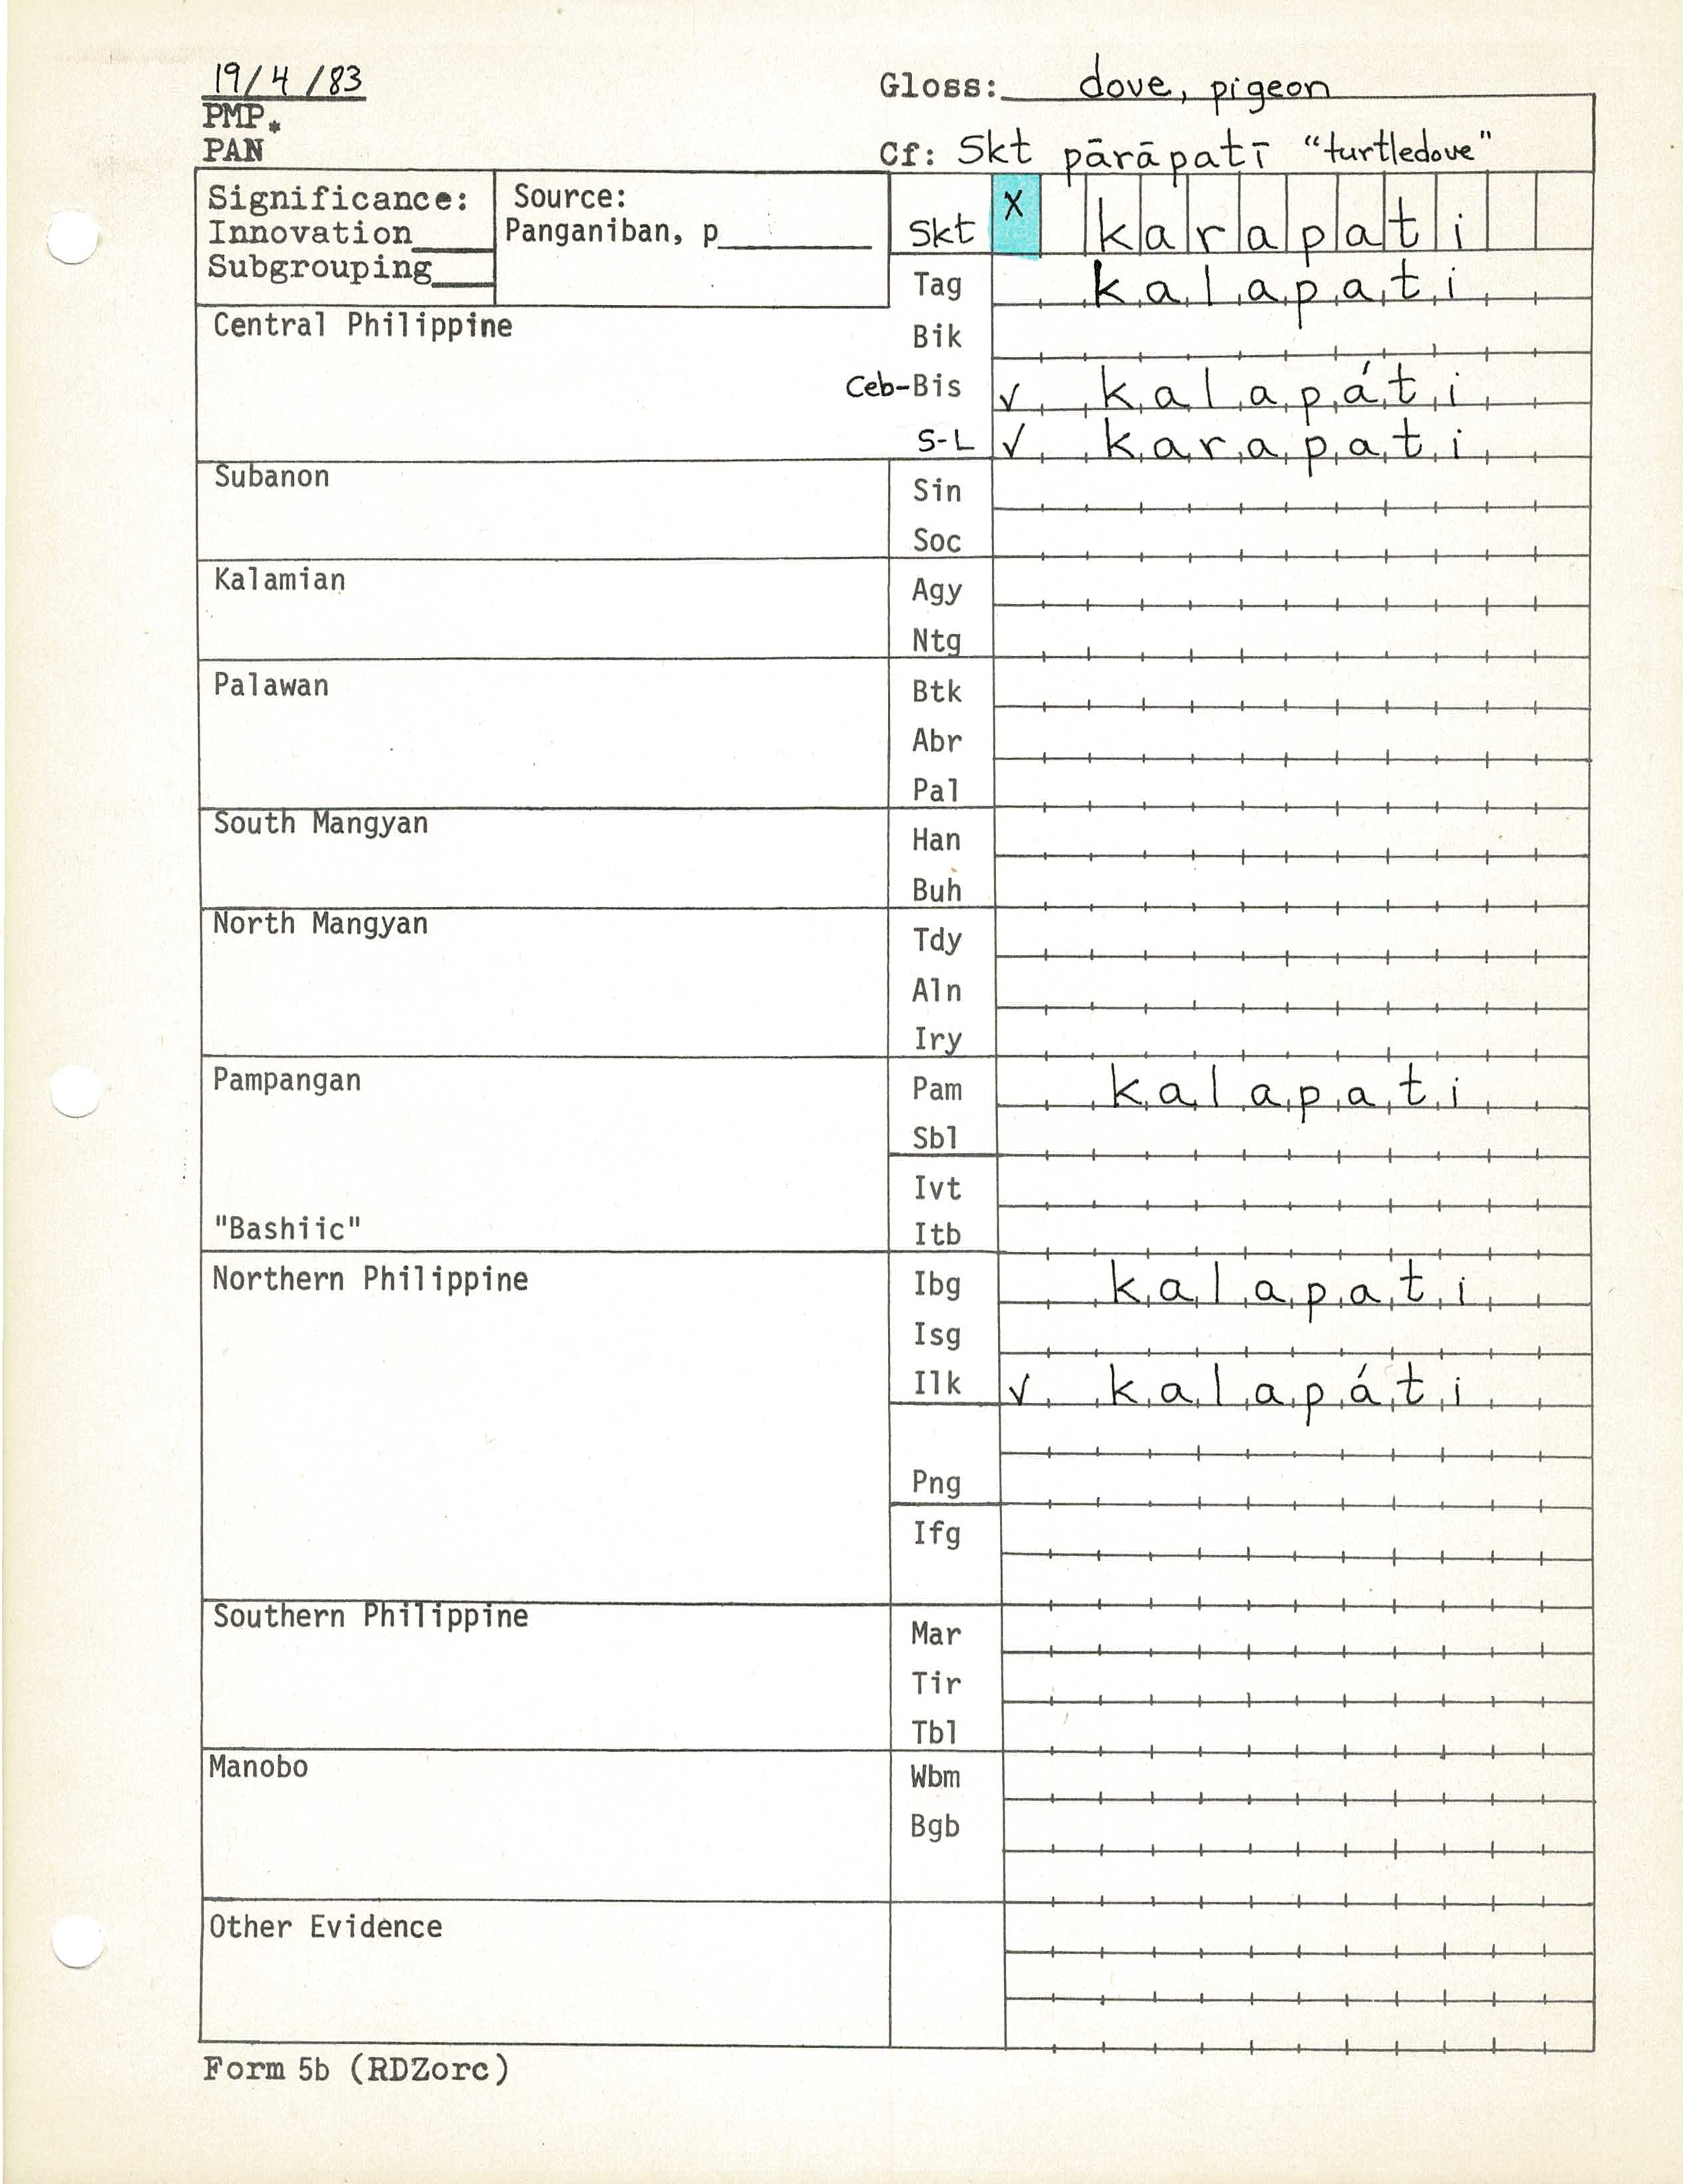 19/4/83
Gloss: dove, pigeon
PMP*
PAN
Cf: Skt pārāpatī "turtledove"
Significance:
Innovation
Subgrouping
Source:
Panganiban, p
Skt x karapati
Tag kalapati
Central Philippine
Bik
Ceb-Bis ✓ kalapáti
S-L ✓ karapati
Subanon
Sin
Soc
Kalamian
Agy
Ntg
Palawan
Btk
Abr
Pal
South Mangyan
Han
Buh
North Mangyan
Tdy
Aln
Iry
Pampangan
Pam kalapati
Sbl
Ivt
"Bashiic"
Itb
Northern Philippine
Ibg kalapati
Isg
Ilk ✓ kalapáti
Png
Ifg
Southern Philippine
Mar
Tir
Tbl
Manobo
Wbm
Bgb
Other Evidence
Form 5b (RDZorc)